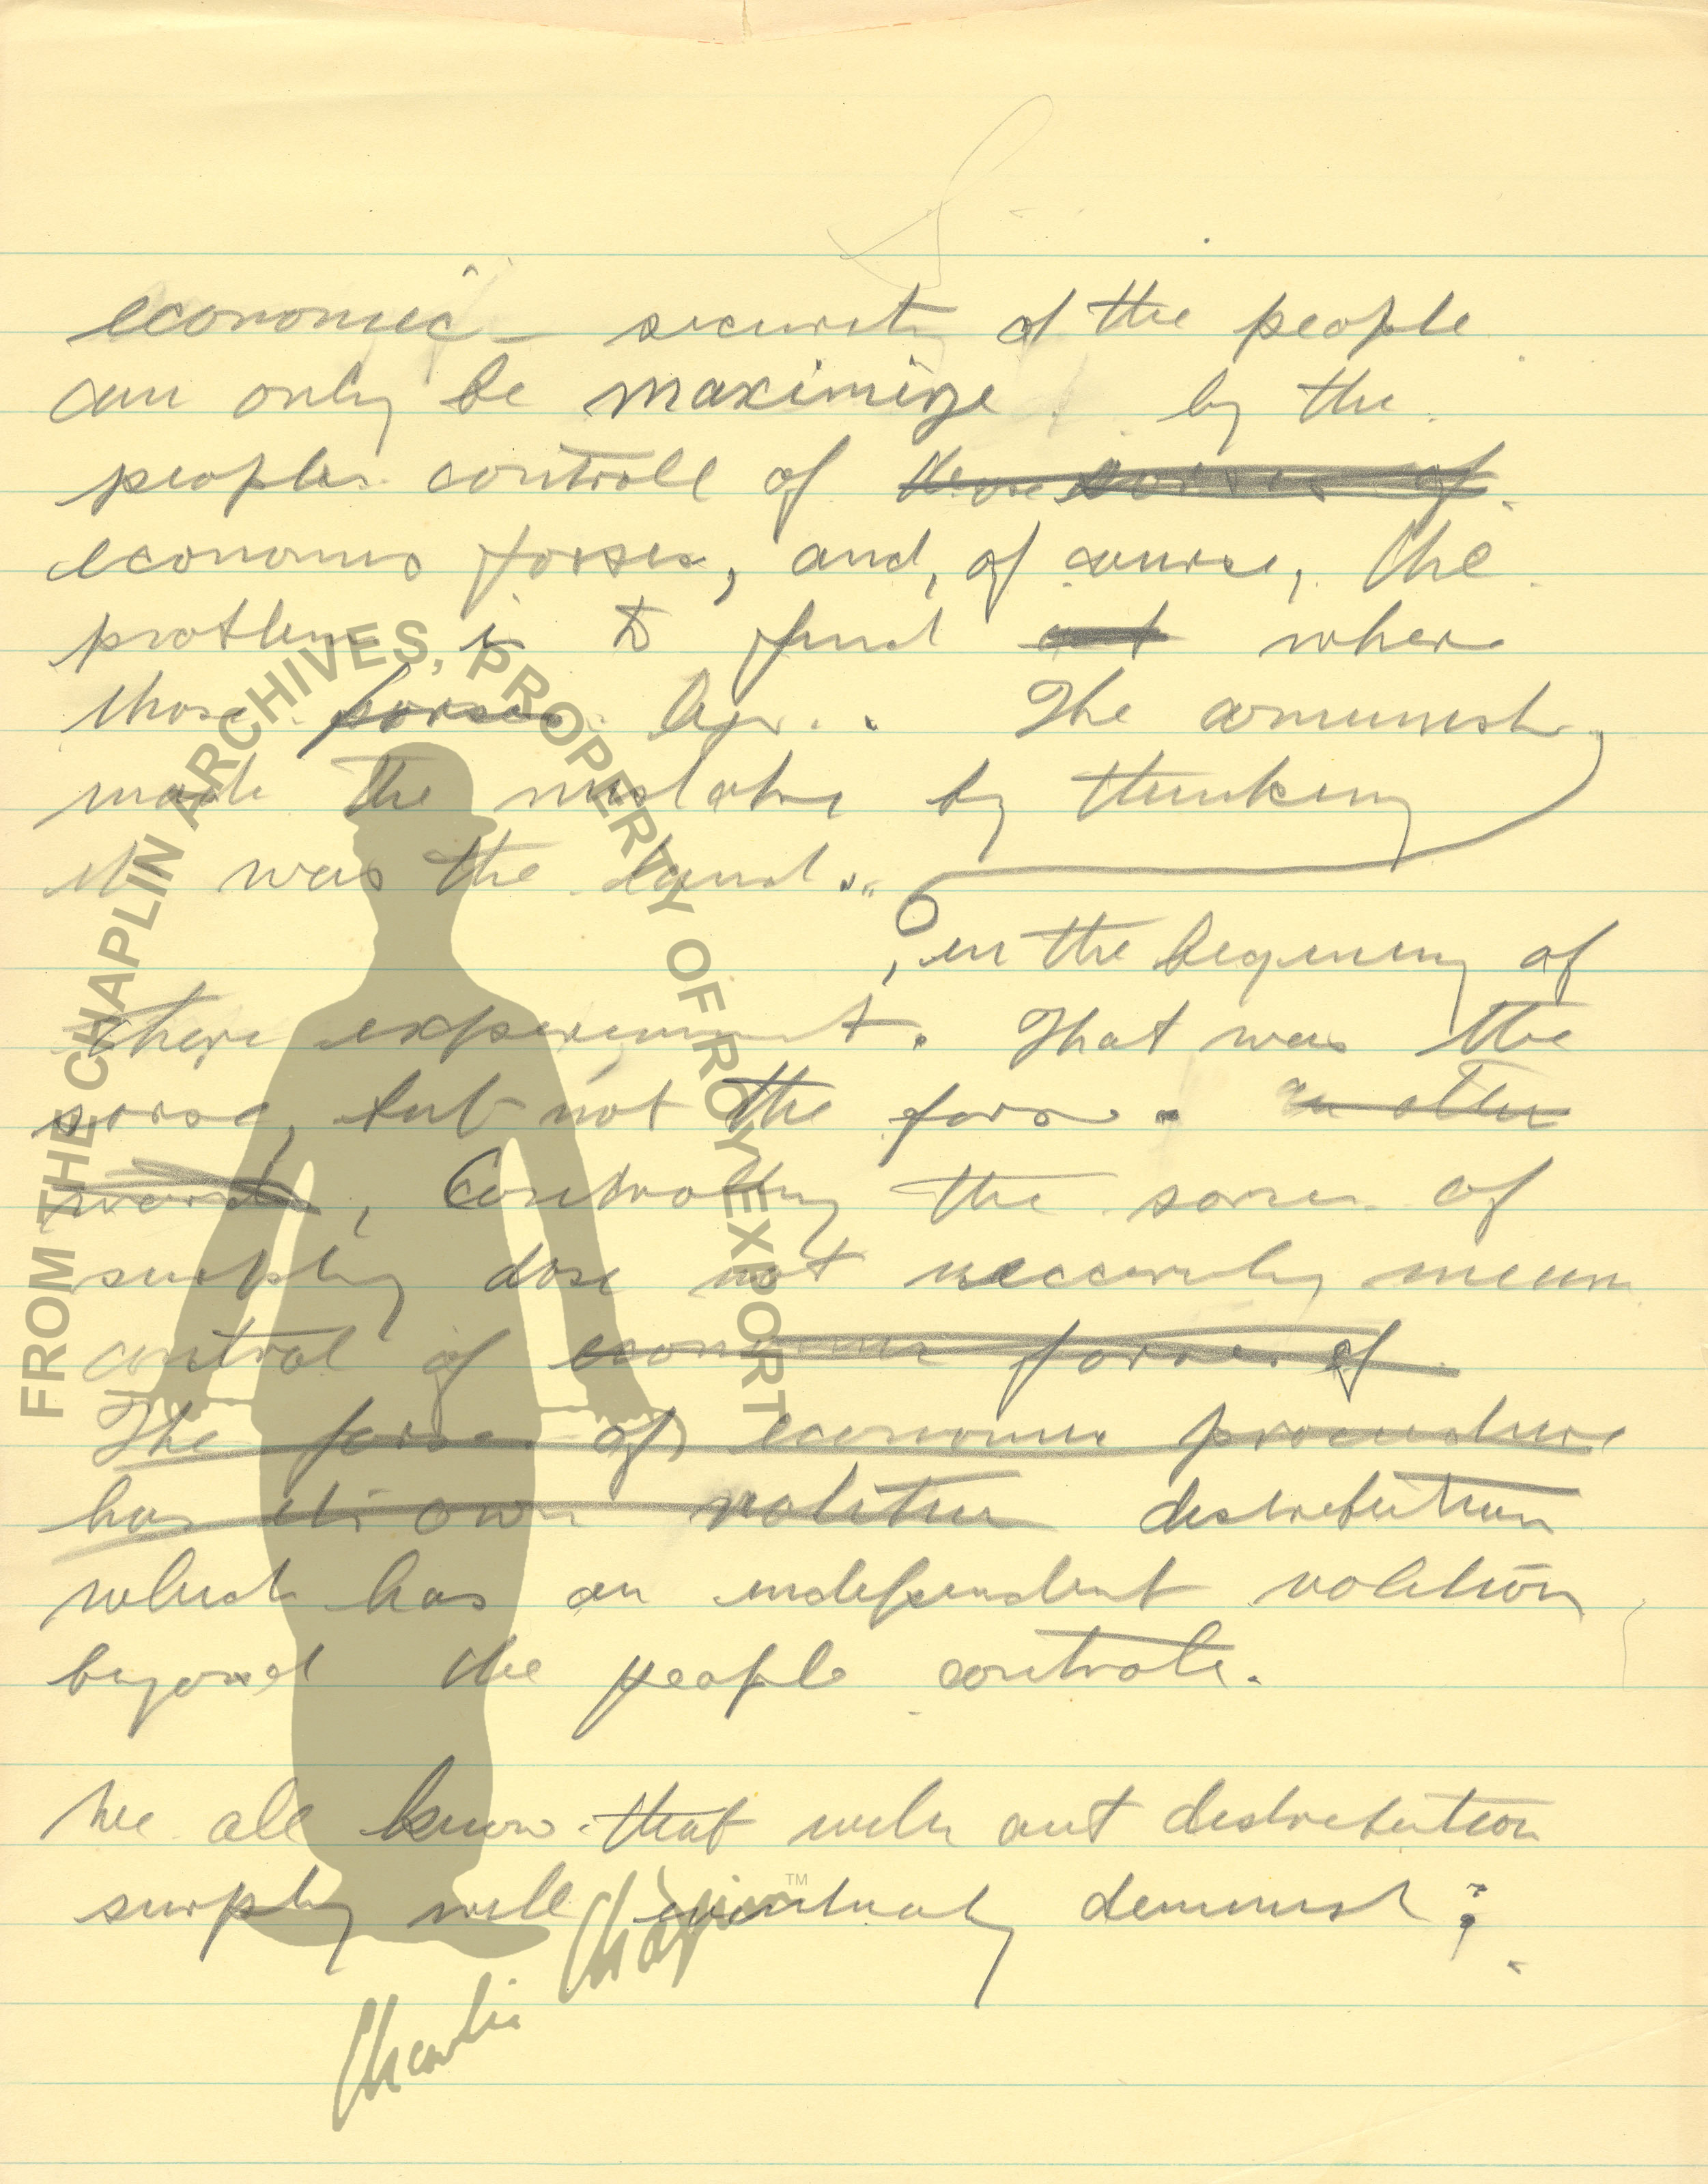 economic security of the people
can only be maximize by the
peoples controll of those sorses of
economis forses, and, of course, the
problem is to find out where
those forses lye. The comunish
made the mistake by thinking
it was the land.
, in the begining of
there experiment. That was the
sorse, but not the forse. In other
words, Controlling the sorse of
surpley dose not neccerely mean
control of economic forses of
The forse of economic procedure
has its own volition distribution
which has an independent volition
beyond the people controle.
We all know that with out distribution
surpley will eventualy deminish;
FROM THE CHAPLIN ARCHIVES, PROPERTY OF ROY EXPORT
Charlie Chaplin™